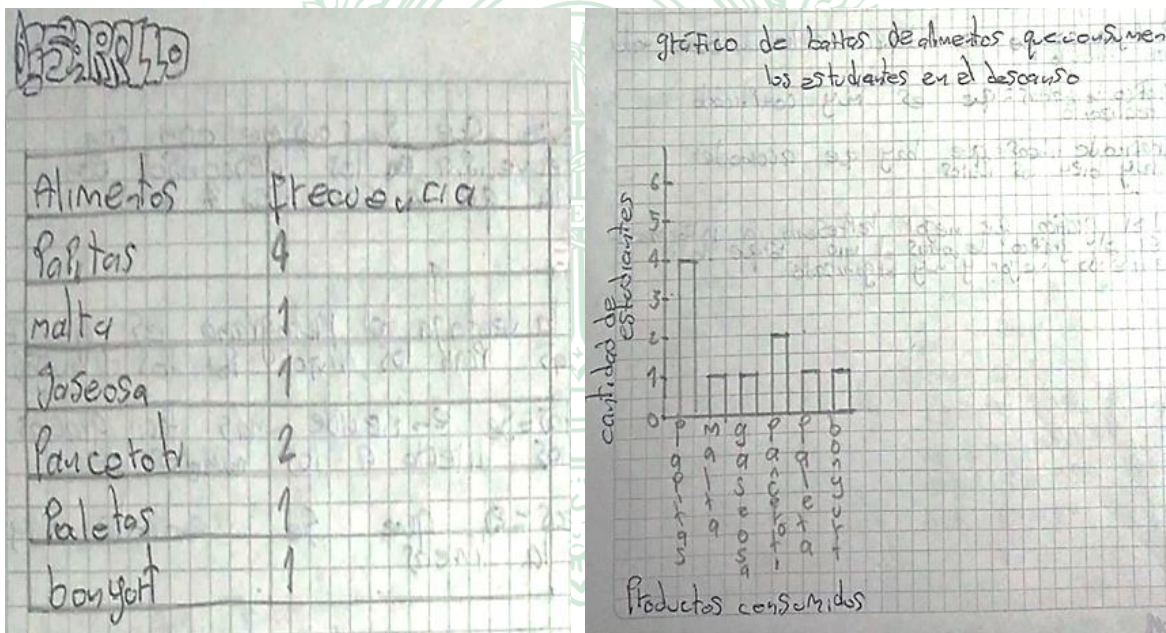 Alimentos frecuencia
Papitas 4
malta 1
gaseosa 1
Pancerotti 2
Paletas 1
bonyort 1
gráfico de barras de alimentos que consumen
los estudiantes en el descanso
cantidad de
estudiantes
6
5
4
3
2
1
0
papitas
malta
gaseosa
pancerotti
paleta
bonyurt
Productos consumidos